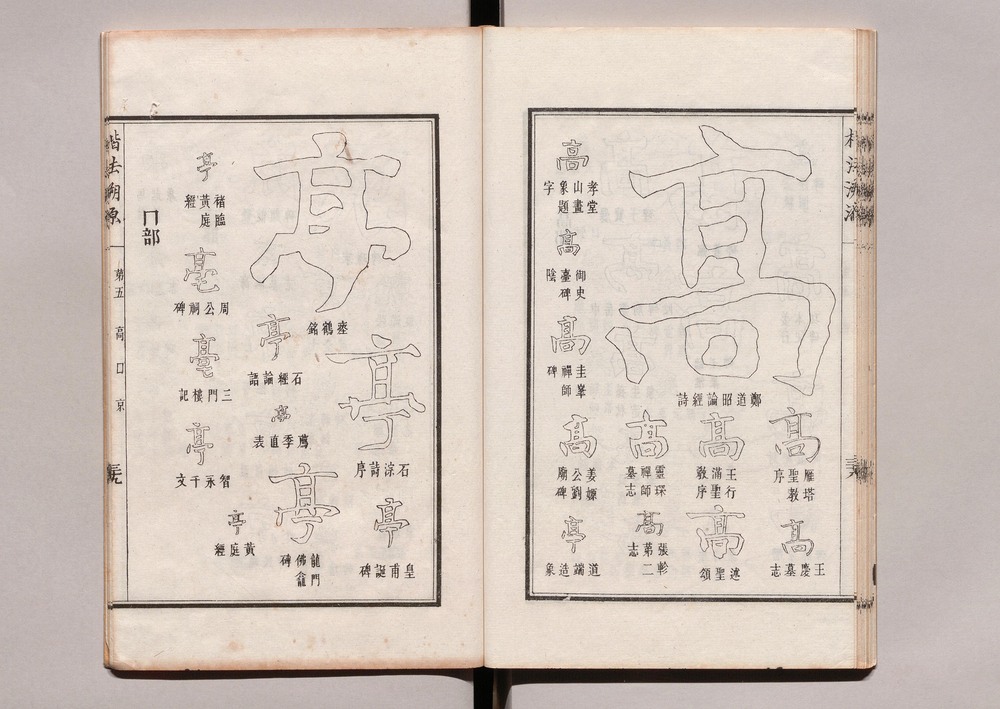 高
鄭道昭論經詩
高
雁塔聖教序
高
王慶墓志
高
王行滿聖教序
高
述聖頌
高
靈琛禪師墓志
高
張軫第二志
高
孝堂山畫象題字
高
御史臺碑陰
高
圭峯禪師碑
高
姜嫄公劉廟碑
亭
道端造象
亭
瘞鶴銘
亭
石淙詩序
亭
皇甫誕碑
亭
石經論語
亭
薦季直表
亭
龍門佛龕碑
亭
黃庭經
亭
褚臨黃庭經
亳
周公祠碑
亳
三門樓記
亭
智永千文
冂部
楷法溯原
第五
高
口
京
三九